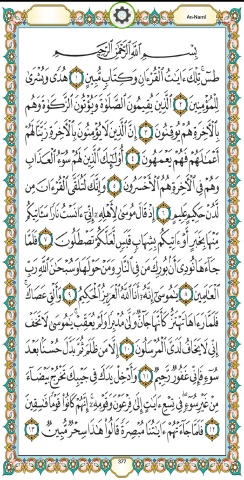 An-Naml
بِسْمِ اللَّهِ الرَّحْمَٰنِ الرَّحِيمِ
طسٓ ۚ تِلْكَ ءَايَٰتُ ٱلْقُرْءَانِ وَكِتَابٍ مُّبِينٍ ١ هُدًى وَبُشْرَىٰ
لِلْمُؤْمِنِينَ ٢ ٱلَّذِينَ يُقِيمُونَ ٱلصَّلَوٰةَ وَيُؤْتُونَ ٱلزَّكَوٰةَ وَهُم
بِٱلْءَاخِرَةِ هُمْ يُوقِنُونَ ٣ إِنَّ ٱلَّذِينَ لَا يُؤْمِنُونَ بِٱلْءَاخِرَةِ زَيَّنَّا لَهُمْ
أَعْمَٰلَهُمْ فَهُمْ يَعْمَهُونَ ٤ أُو۟لَٰٓئِكَ ٱلَّذِينَ لَهُمْ سُوٓءُ ٱلْعَذَابِ
وَهُمْ فِى ٱلْءَاخِرَةِ هُمُ ٱلْأَخْسَرُونَ ٥ وَإِنَّكَ لَتُلَقَّى ٱلْقُرْءَانَ مِن
لَّدُنْ حَكِيمٍ عَلِيمٍ ٦ إِذْ قَالَ مُوسَىٰ لِأَهْلِهِۦٓ إِنِّىٓ ءَانَسْتُ نَارًا سَـَٔاتِيكُم
مِّنْهَا بِخَبَرٍ أَوْ ءَاتِيكُم بِشِهَابٍ قَبَسٍ لَّعَلَّكُمْ تَصْطَلُونَ ٧ فَلَمَّا
جَآءَهَا نُودِىَ أَنۢ بُورِكَ مَن فِى ٱلنَّارِ وَمَنْ حَوْلَهَا وَسُبْحَٰنَ ٱللَّهِ رَبِّ
ٱلْعَٰلَمِينَ ٨ يَٰمُوسَىٰٓ إِنَّهُۥٓ أَنَا ٱللَّهُ ٱلْعَزِيزُ ٱلْحَكِيمُ ٩ وَأَلْقِ عَصَاكَ ۚ
فَلَمَّا رَءَاهَا تَهْتَزُّ كَأَنَّهَا جَآنٌّ وَلَّىٰ مُدْبِرًا وَلَمْ يُعَقِّبْ ۚ يَٰمُوسَىٰ لَا تَخَفْ
إِنِّى لَا يَخَافُ لَدَىَّ ٱلْمُرْسَلُونَ ١٠ إِلَّا مَن ظَلَمَ ثُمَّ بَدَّلَ حُسْنًۢا بَعْدَ
سُوٓءٍ فَإِنِّى غَفُورٌ رَّحِيمٌ ١١ وَأَدْخِلْ يَدَكَ فِى جَيْبِكَ تَخْرُجْ بَيْضَآءَ
مِنْ غَيْرِ سُوٓءٍ ۖ فِى تِسْعِ ءَايَٰتٍ إِلَىٰ فِرْعَوْنَ وَقَوْمِهِۦٓ ۚ إِنَّهُمْ كَانُوا۟ قَوْمًا فَٰسِقِينَ
١٢ فَلَمَّا جَآءَتْهُمْ ءَايَٰتُنَا مُبْصِرَةً قَالُوا۟ هَٰذَا سِحْرٌ مُّبِينٌ ١٣
377